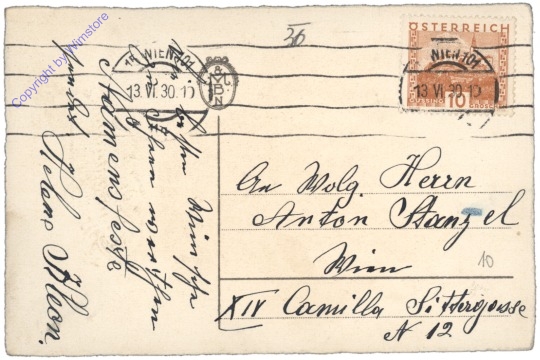 Copyright by Winstore
36
ÖSTERREICH
WIEN 101
13. VI. 30. 1
10
GROSCHEN
WIEN 101
13. VI. 30. 1
Die besten Wünsche
zu Ihrem werthen
Namensfeste
sendet Helene
An Wolg. Herrn
Anton Stanzel
Wien
XIV Camilla Sittergasse
N 12
10